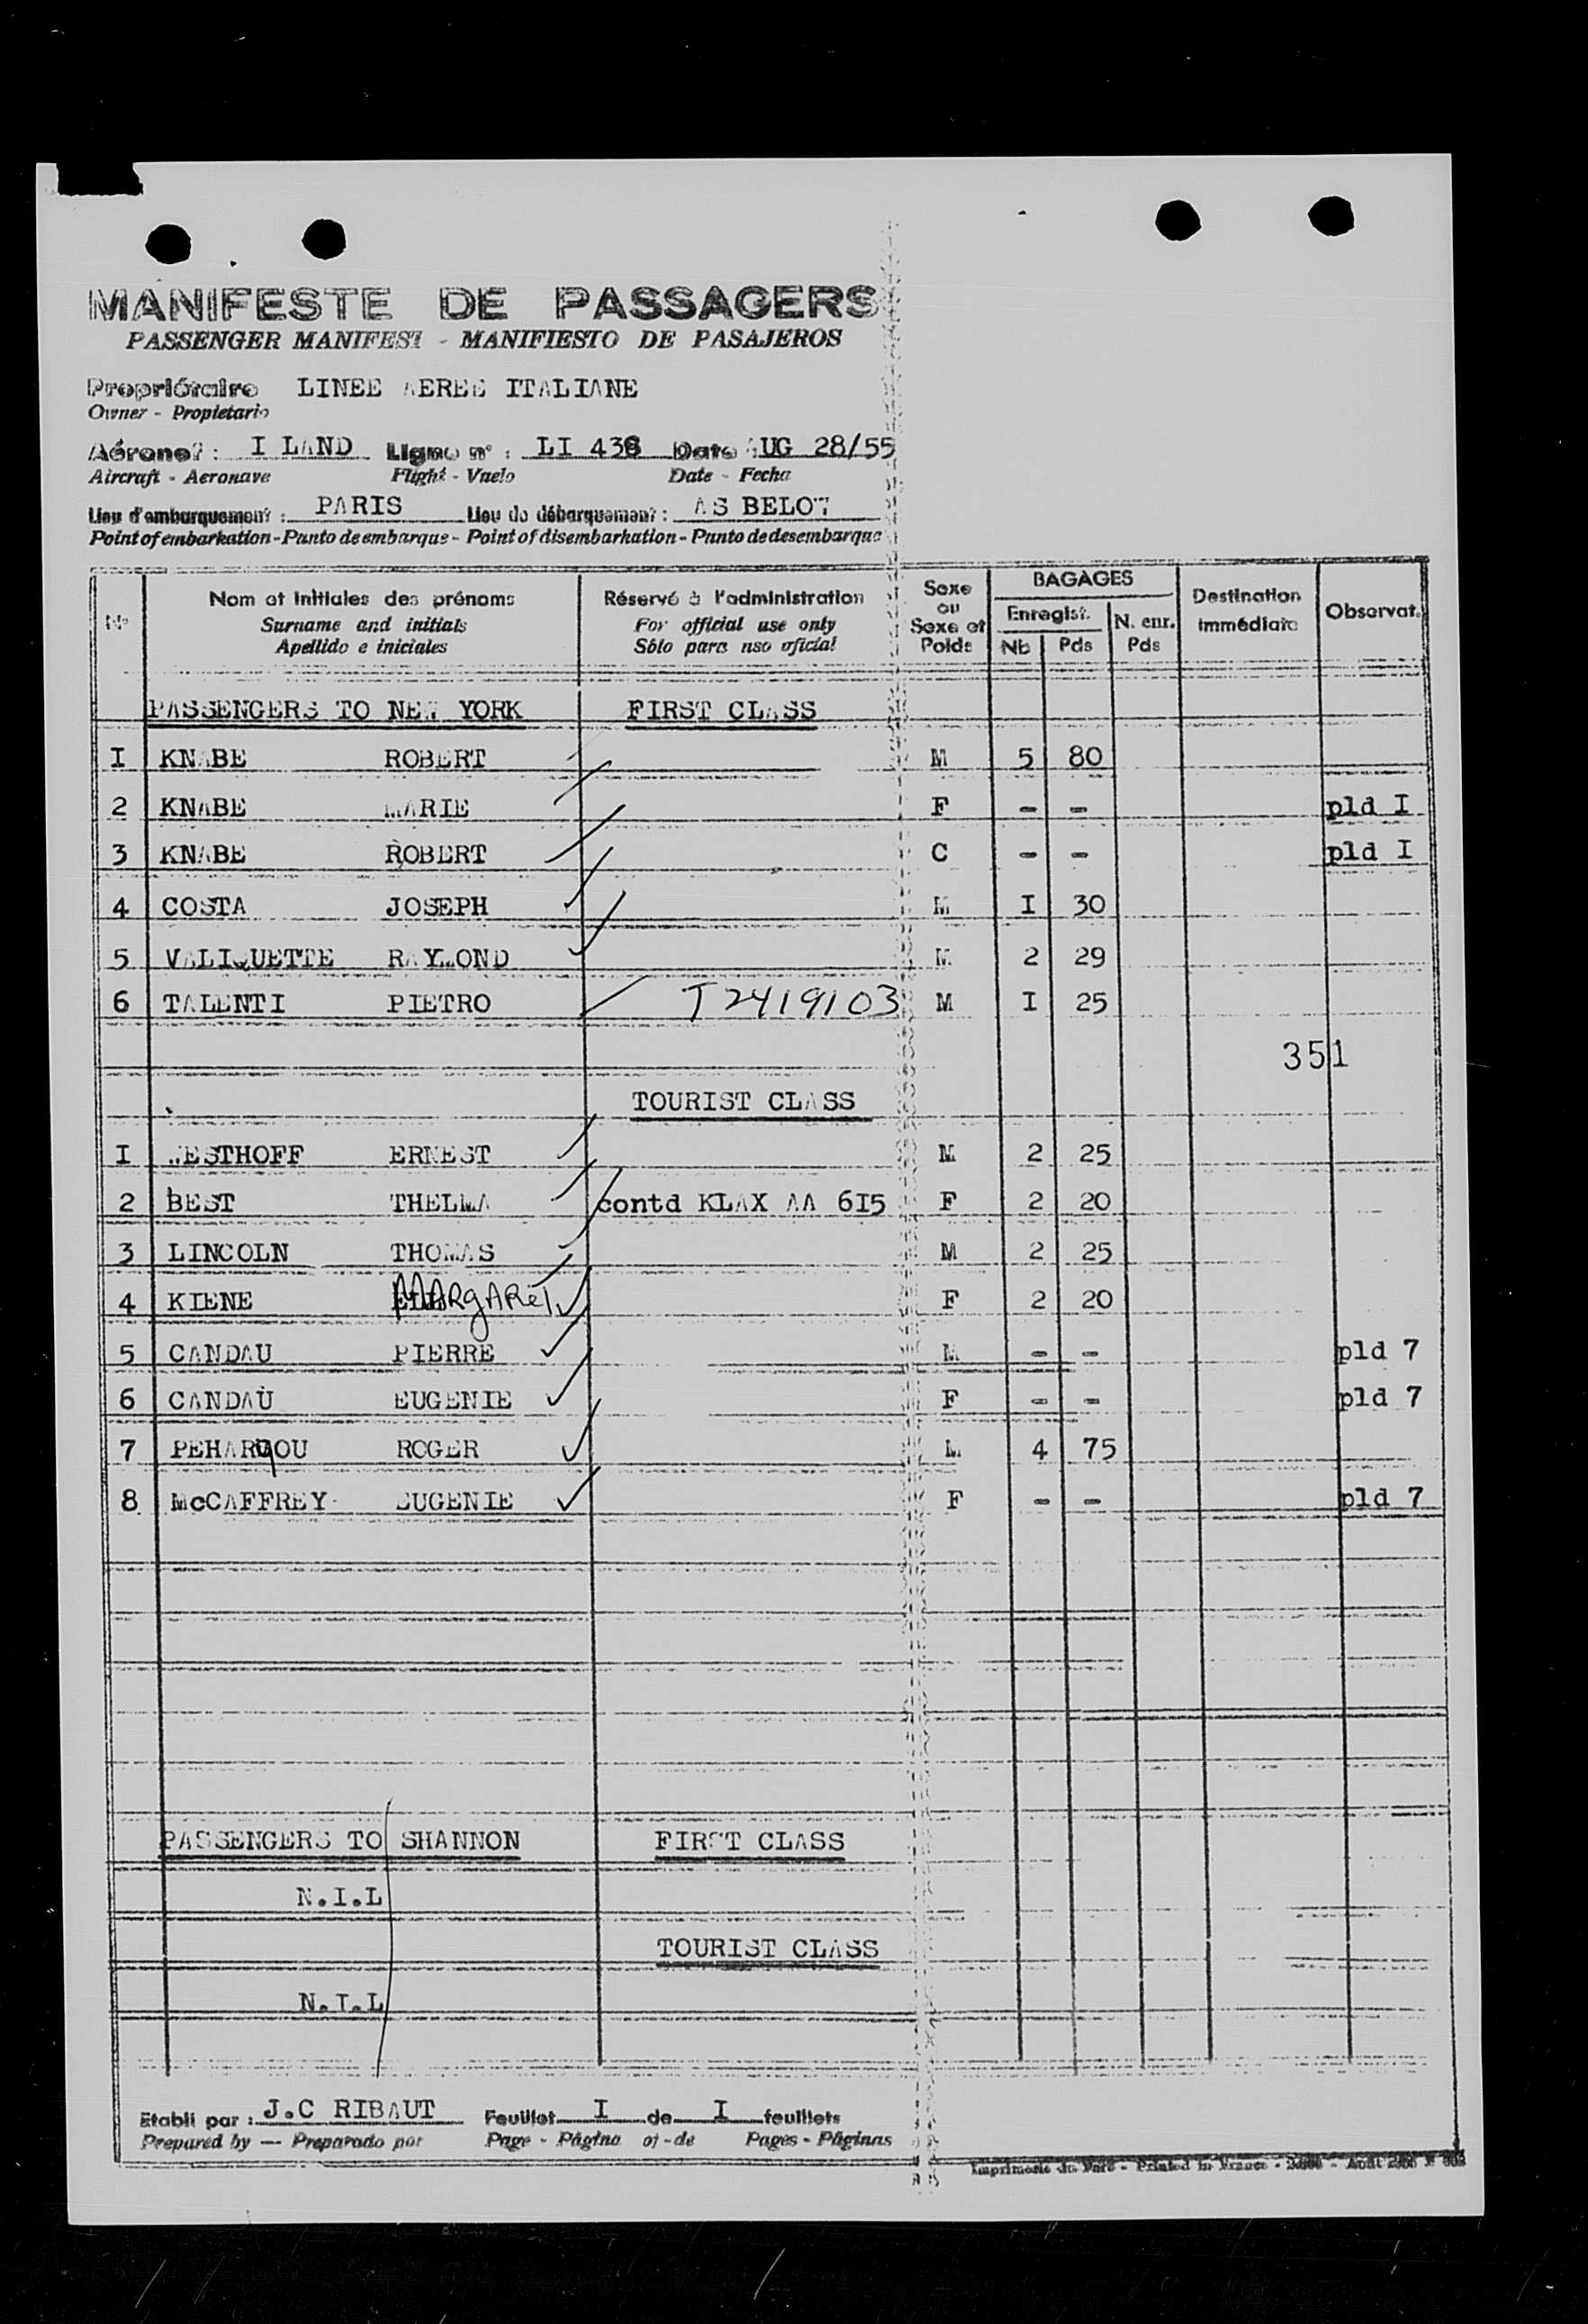 MANIFESTE DE PASSAGERS
PASSENGER MANIFEST - MANIFIESTO DE PASAJEROS
Propriétaire LINEE AEREE ITALIANE
Owner - Propietario
Aéronef : I LAND Ligne n° : LI 438 Date AUG 28/55
Aircraft - Aeronave Flight - Vuelo Date - Fecha
Lieu d'embarquement : PARIS Lieu de débarquement : AS BELOW
Point of embarkation - Punto de embarque - Point of disembarkation - Punto de desembarque
N° Nom et initiales des prénoms Réservé à l'administration Sexe ou Sexe et Poids BAGAGES Destination immédiate Observat.
Surname and initials For official use only Enregist. N. enr.
Apellido e iniciales Sólo para uso oficial Nb Pds Pds
PASSENGERS TO NEW YORK FIRST CLASS
I KNABE ROBERT M 5 80
2 KNABE MARIE F - - pld I
3 KNABE ROBERT C - - pld I
4 COSTA JOSEPH M I 30
5 VALIQUETTE RAYMOND M 2 29
6 TALENTI PIETRO T2419103 M I 25
351
TOURIST CLASS
I WESTHOFF ERNEST M 2 25
2 BEST THELMA contd KLAX AA 6I5 F 2 20
3 LINCOLN THOMAS M 2 25
4 KIENE MARgARET F 2 20
5 CANDAU PIERRE M - - pld 7
6 CANDAU EUGENIE F - - pld 7
7 PEHARGOU ROGER M 4 75
8 McCAFFREY EUGENIE F - - pld 7
PASSENGERS TO SHANNON FIRST CLASS
N.I.L
TOURIST CLASS
N.I.L
Etabli par : J.C RIBAUT Feuillet I de I feuillets
Prepared by — Preparado por Page - Página of - de Pages - Páginas
Printed in France